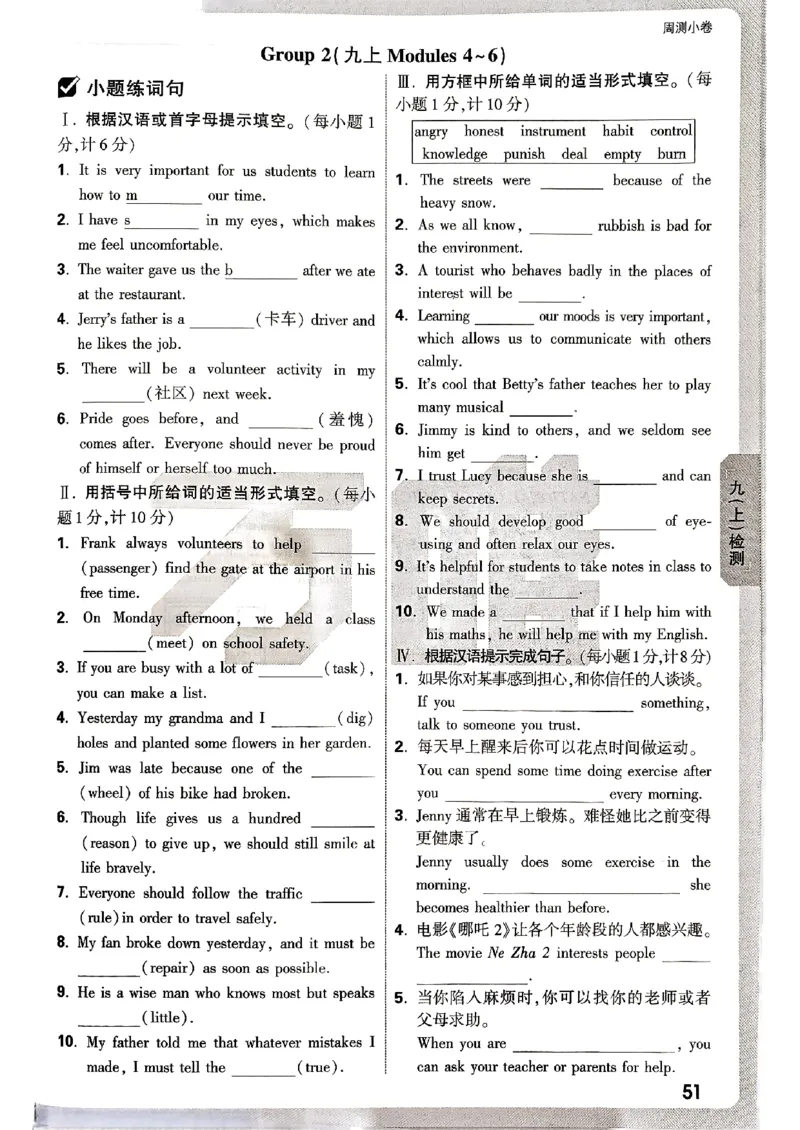 周测小卷
Group 2(九上 Modules 4~6)
小题练词句
Ⅰ. 根据汉语或首字母提示填空。(每小题 1
分,计 6 分)
1. It is very important for us students to learn
how to m________ our time.
2. I have s________ in my eyes, which makes
me feel uncomfortable.
3. The waiter gave us the b________ after we ate
at the restaurant.
4. Jerry's father is a ________(卡车) driver and
he likes the job.
5. There will be a volunteer activity in my
________(社区) next week.
6. Pride goes before, and ________ (羞愧)
comes after. Everyone should never be proud
of himself or herself too much.
Ⅱ. 用括号中所给词的适当形式填空。(每小
题 1 分,计 10 分)
1. Frank always volunteers to help ________
(passenger) find the gate at the airport in his
free time.
2. On Monday afternoon, we held a class
________(meet) on school safety.
3. If you are busy with a lot of ________(task),
you can make a list.
4. Yesterday my grandma and I ________(dig)
holes and planted some flowers in her garden.
5. Jim was late because one of the ________
(wheel) of his bike had broken.
6. Though life gives us a hundred ________
(reason) to give up, we should still smile at
life bravely.
7. Everyone should follow the traffic ________
(rule)in order to travel safely.
8. My fan broke down yesterday, and it must be
________(repair) as soon as possible.
9. He is a wise man who knows most but speaks
________(little).
10. My father told me that whatever mistakes I
made, I must tell the ________(true).
Ⅲ. 用方框中所给单词的适当形式填空。(每
小题 1 分,计 10 分)
angry honest instrument habit control
knowledge punish deal empty burn
1. The streets were ________ because of the
heavy snow.
2. As we all know, ________ rubbish is bad for
the environment.
3. A tourist who behaves badly in the places of
interest will be ________.
4. Learning ________ our moods is very important,
which allows us to communicate with others
calmly.
5. It's cool that Betty's father teaches her to play
many musical ________.
6. Jimmy is kind to others, and we seldom see
him get ________.
7. I trust Lucy because she is ________ and can
keep secrets.
8. We should develop good ________ of eye-
using and often relax our eyes.
9. It's helpful for students to take notes in class to
understand the ________.
10. We made a ________ that if I help him with
his maths, he will help me with my English.
Ⅳ. 根据汉语提示完成句子。(每小题 1 分,计 8 分)
1. 如果你对某事感到担心,和你信任的人谈谈。
If you ____________________ something,
talk to someone you trust.
2. 每天早上醒来后你可以花点时间做运动。
You can spend some time doing exercise after
you ____________________ every morning.
3. Jenny 通常在早上锻炼。难怪她比之前变得
更健康了。
Jenny usually does some exercise in the
morning. ____________________ she
becomes healthier than before.
4. 电影《哪吒 2》让各个年龄段的人都感兴趣。
The movie Ne Zha 2 interests people ______
______________.
5. 当你陷入麻烦时,你可以找你的老师或者
父母求助。
When you are ____________________, you
can ask your teacher or parents for help.
九(上)检测
51